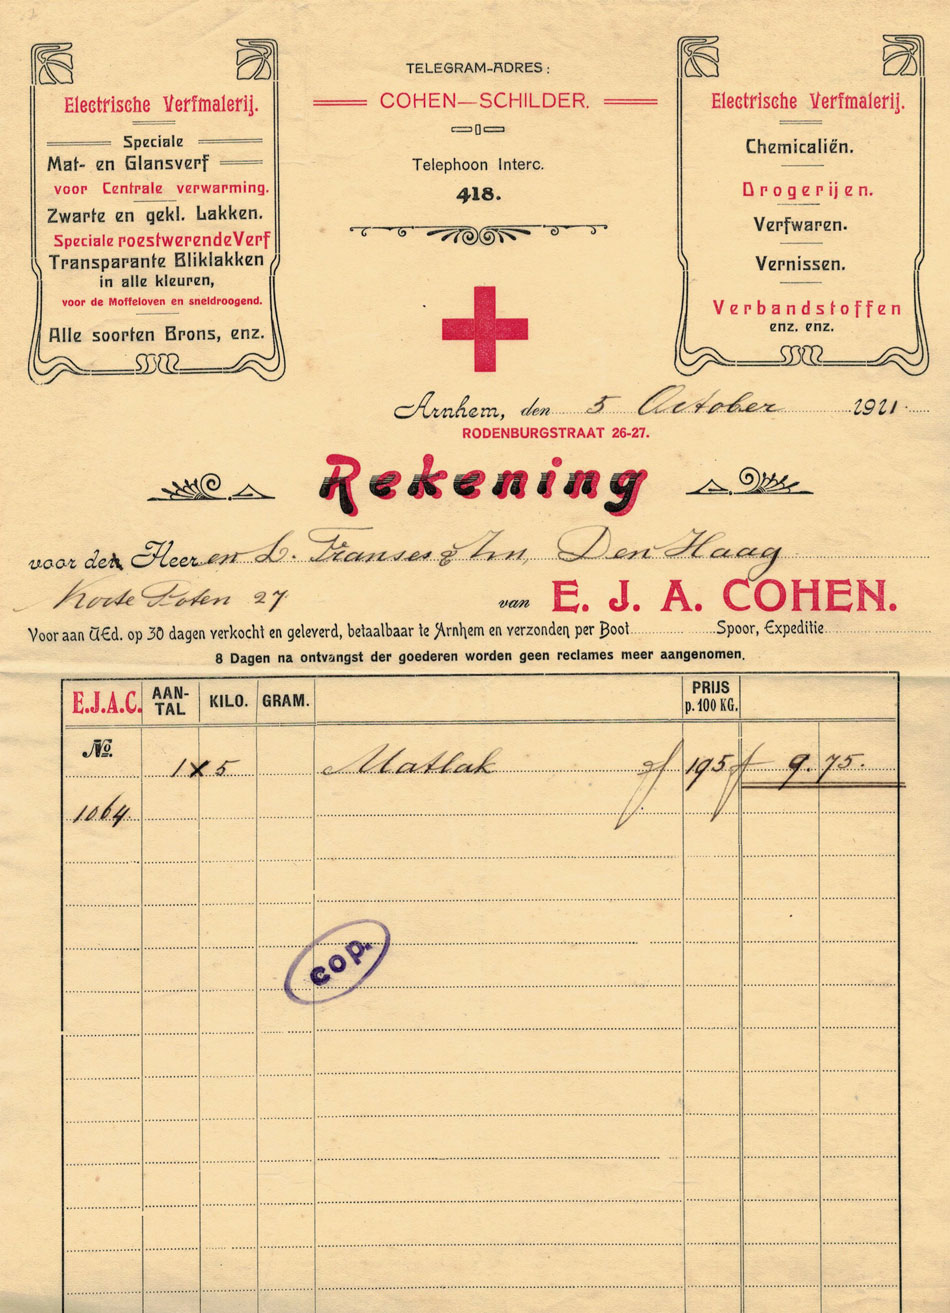 Electrische Verfmalerij.
Speciale
Mat- en Glansverf
voor Centrale verwarming.
Zwarte en gekl. Lakken.
Speciale roestwerende Verf
Transparante Bliklakken
in alle kleuren,
voor de Moffeloven en sneldroogend.
Alle soorten Brons, enz.
TELEGRAM-ADRES:
COHEN—SCHILDER.
Telephoon Interc.
418.
Electrische Verfmalerij.
Chemicaliën.
Drogerijen.
Verfwaren.
Vernissen.
Verbandstoffen
enz. enz.
Arnhem, den 5 October 1921.
RODENBURGSTRAAT 26-27.
Rekening
voor den Heeren L. Franses & Zn, Den Haag
Korte Poten 27
van E. J. A. COHEN.
Voor aan UEd. op 30 dagen verkocht en geleverd, betaalbaar te Arnhem en verzonden per Boot Spoor, Expeditie
8 Dagen na ontvangst der goederen worden geen reclames meer aangenomen.
E.J.A.C. AAN-TAL KILO. GRAM. PRIJS p. 100 KG.
No.
1 x 5 Matlak f 195 f 9.75.
1064
cop.